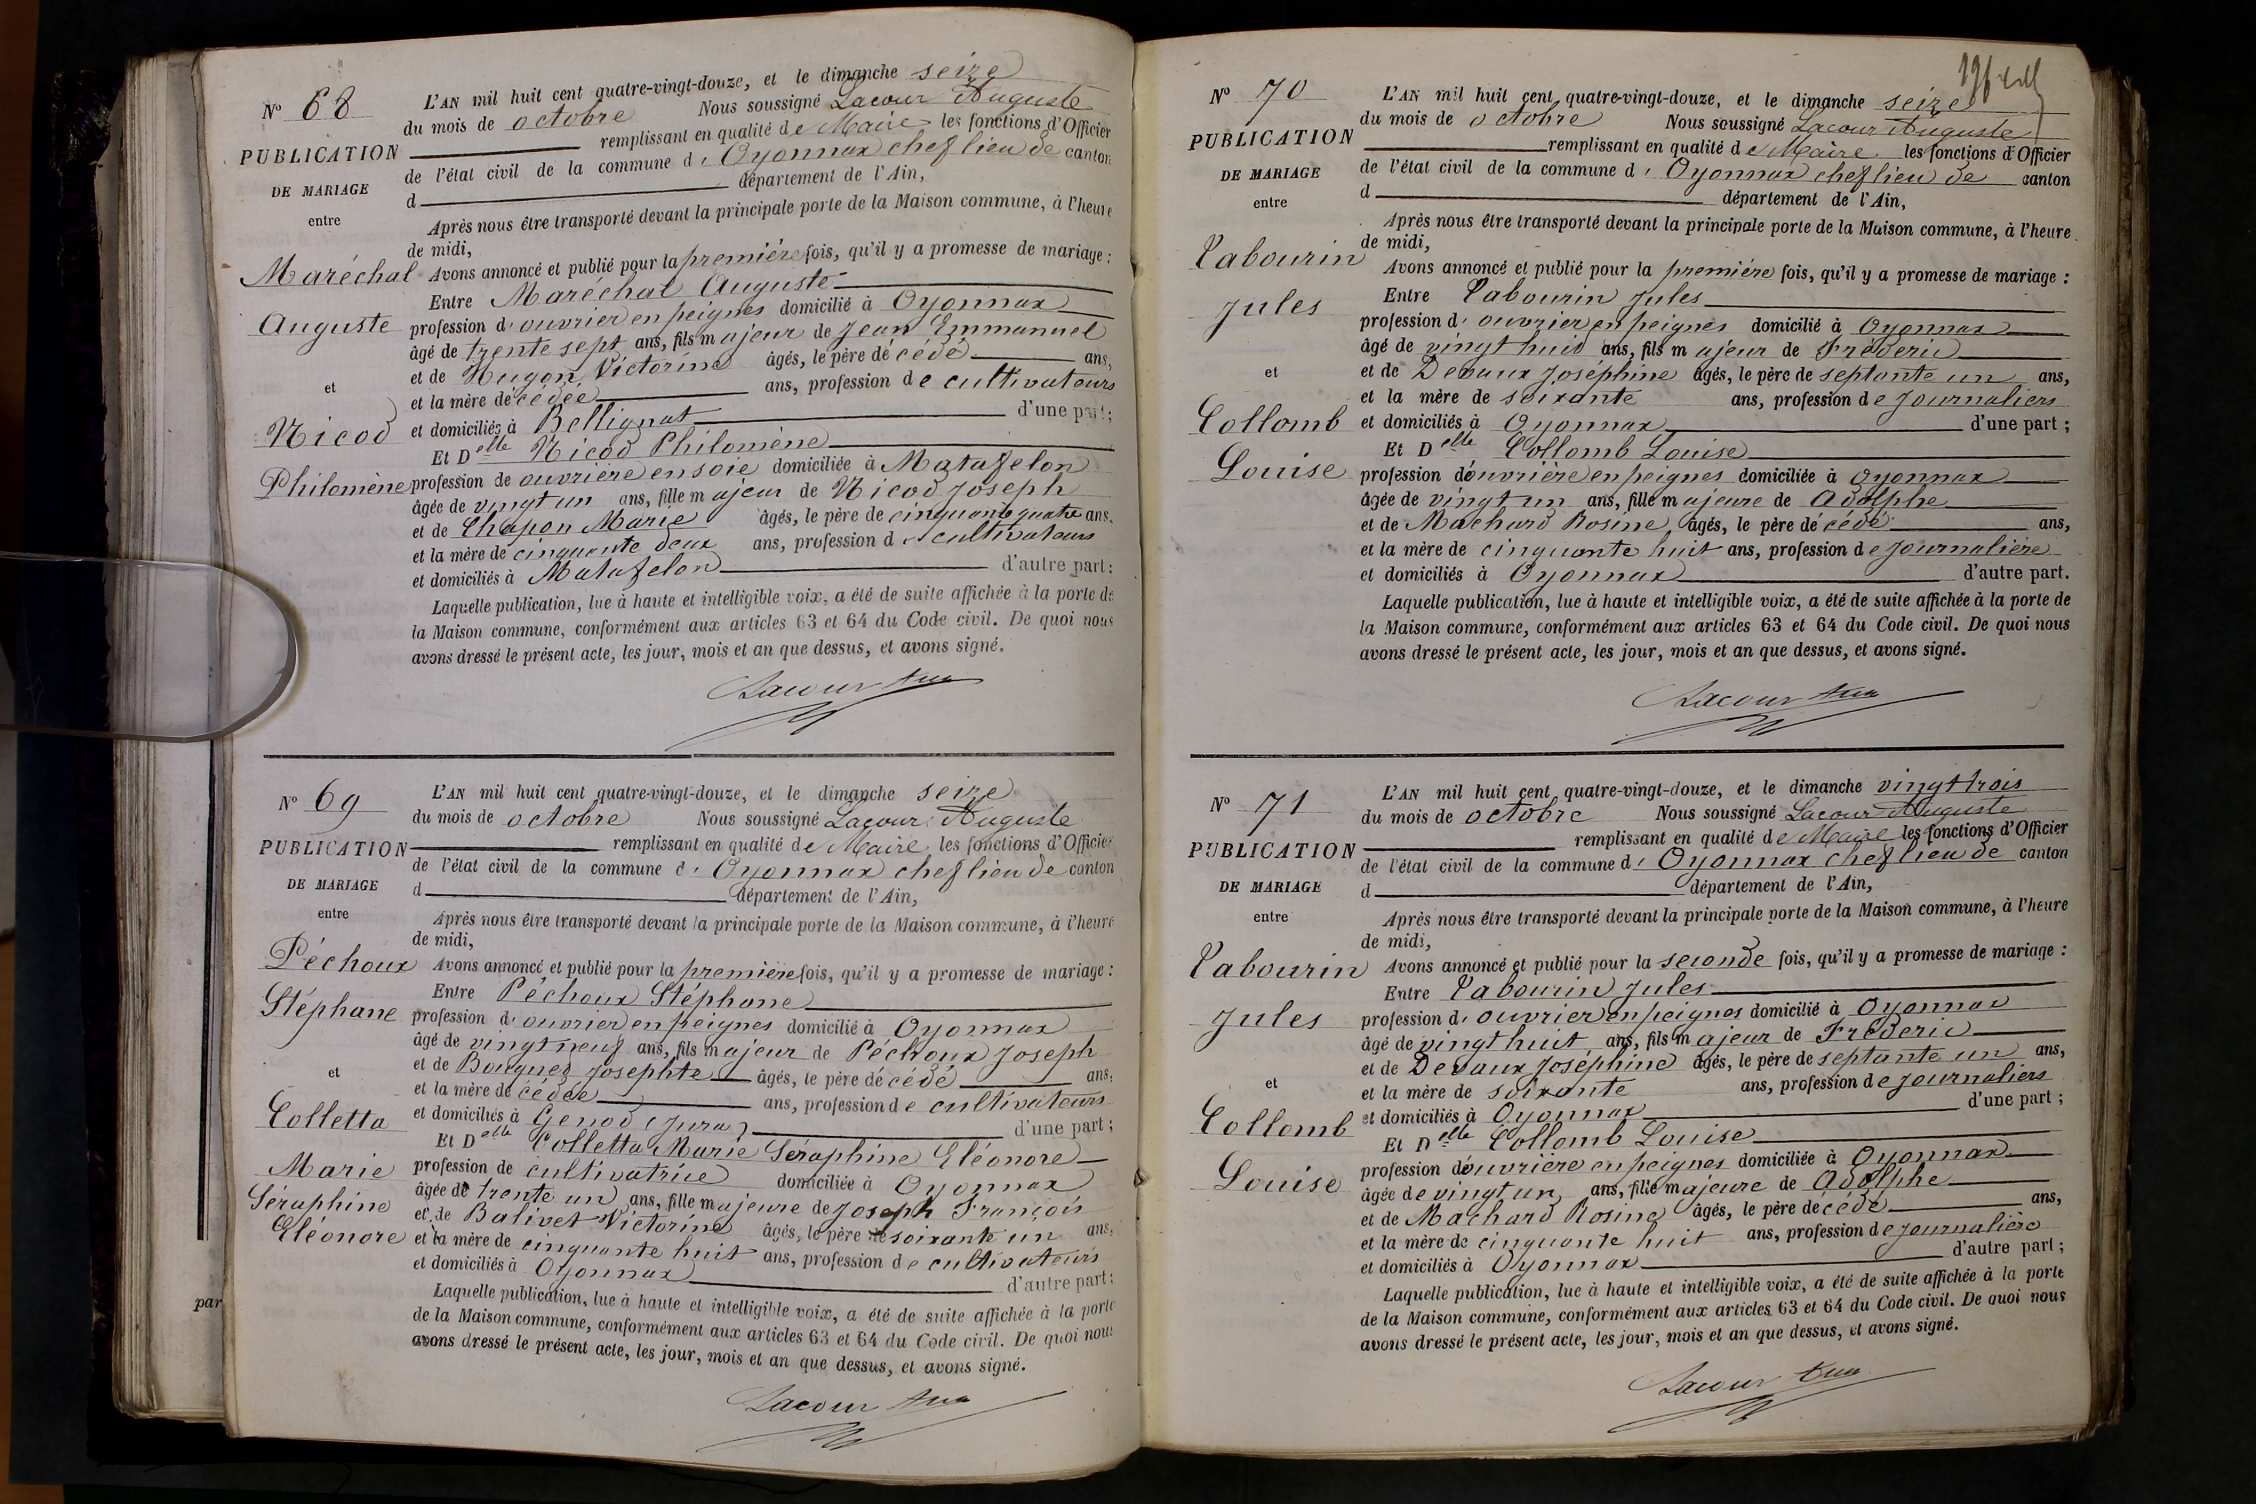 N° 68
PUBLICATION
DE MARIAGE
entre
Maréchal
Auguste
et
Nicod
Philomène
L'AN mil huit cent quatre-vingt-douze, et le dimanche seize
du mois de octobre Nous soussigné Lacour Auguste
remplissant en qualité de Maire les fonctions d'Officier
de l'état civil de la commune d'Oyonnax chef lieu de canton
d département de l'Ain,
Après nous être transporté devant la principale porte de la Maison commune, à l'heure
de midi,
Avons annoncé et publié pour la première fois, qu'il y a promesse de mariage :
Entre Maréchal Auguste
profession d'ouvrier en peignes domicilié à Oyonnax
âgé de trente sept ans, fils majeur de Jean Emmanuel
et de Hugon Victorine âgés, le père décédé ans,
et la mère décédée ans, profession de cultivateurs
et domiciliés à Bellignat d'une part ;
Et Delle Nicod Philomène
profession de ouvrière en soie domiciliée à Matafelon
âgée de vingt un ans, fille majeur de Nicod Joseph
et de Chapon Marie âgés, le père de cinquante quatre ans,
et la mère de cinquante deux ans, profession de cultivateurs
et domiciliés à Matafelon d'autre part ;
Laquelle publication, lue à haute et intelligible voix, a été de suite affichée à la porte de
la Maison commune, conformément aux articles 63 et 64 du Code civil. De quoi nous
avons dressé le présent acte, les jour, mois et an que dessus, et avons signé.
Lacour Aug
N° 69
PUBLICATION
DE MARIAGE
entre
Péchoux
Stéphane
et
Colletta
Marie
Séraphine
Eléonore
L'AN mil huit cent quatre-vingt-douze, et le dimanche seize
du mois de octobre Nous soussigné Lacour Auguste
remplissant en qualité de Maire les fonctions d'Officier
de l'état civil de la commune d'Oyonnax chef lieu de canton
d département de l'Ain,
Après nous être transporté devant la principale porte de la Maison commune, à l'heure
de midi,
Avons annoncé et publié pour la première fois, qu'il y a promesse de mariage :
Entre Péchoux Stéphane
profession d'ouvrier en peignes domicilié à Oyonnax
âgé de vingt neuf ans, fils majeur de Péchoux Joseph
et de Bouguer Josephte âgés, le père décédé ans,
et la mère décédée ans, profession de cultivateurs
et domiciliés à Genod (Jura) d'une part ;
Et Delle Colletta Marie Séraphine Eléonore
profession de cultivatrice domiciliée à Oyonnax
âgée de trente un ans, fille majeure de Joseph François
et de Balivet Victorine âgés, le père de soixante un ans,
et la mère de cinquante huit ans, profession de cultivateurs
et domiciliés à Oyonnax d'autre part ;
Laquelle publication, lue à haute et intelligible voix, a été de suite affichée à la porte
de la Maison commune, conformément aux articles 63 et 64 du Code civil. De quoi nous
avons dressé le présent acte, les jour, mois et an que dessus, et avons signé.
Lacour Aug
par
N° 70
PUBLICATION
DE MARIAGE
entre
Tabourin
Jules
et
Collomb
Louise
L'AN mil huit cent quatre-vingt-douze, et le dimanche seize
du mois de octobre Nous soussigné Lacour Auguste
remplissant en qualité de Maire les fonctions d'Officier
de l'état civil de la commune d'Oyonnax chef lieu de canton
d département de l'Ain,
Après nous être transporté devant la principale porte de la Maison commune, à l'heure
de midi,
Avons annoncé et publié pour la première fois, qu'il y a promesse de mariage :
Entre Tabourin Jules
profession d'ouvrier en peignes domicilié à Oyonnax
âgé de vingt huit ans, fils majeur de Fréderic
et de Devaux Joséphine âgés, le père de septante un ans,
et la mère de soixante ans, profession de journaliers
et domiciliés à Oyonnax d'une part ;
Et Delle Collomb Louise
profession d'ouvrière en peignes domiciliée à Oyonnax
âgée de vingt un ans, fille majeure de Adolphe
et de Machard Rosine âgés, le père décédé ans,
et la mère de cinquante huit ans, profession de journalière
et domiciliés à Oyonnax d'autre part.
Laquelle publication, lue à haute et intelligible voix, a été de suite affichée à la porte de
la Maison commune, conformément aux articles 63 et 64 du Code civil. De quoi nous
avons dressé le présent acte, les jour, mois et an que dessus, et avons signé.
Lacour Aug
N° 71
PUBLICATION
DE MARIAGE
entre
Tabourin
Jules
et
Collomb
Louise
L'AN mil huit cent quatre-vingt-douze, et le dimanche vingt trois
du mois de octobre Nous soussigné Lacour Auguste
remplissant en qualité de Maire les fonctions d'Officier
de l'état civil de la commune d'Oyonnax chef lieu de canton
d département de l'Ain,
Après nous être transporté devant la principale porte de la Maison commune, à l'heure
de midi,
Avons annoncé et publié pour la seconde fois, qu'il y a promesse de mariage :
Entre Tabourin Jules
profession d'ouvrier en peignes domicilié à Oyonnax
âgé de vingt huit ans, fils majeur de Fréderic
et de Devaux Joséphine âgés, le père de septante un ans,
et la mère de soixante ans, profession de journaliers
et domiciliés à Oyonnax d'une part ;
Et Delle Collomb Louise
profession d'ouvrière en peignes domiciliée à Oyonnax
âgée de vingt un ans, fille majeure de Adolphe
et de Machard Rosine âgés, le père décédé ans,
et la mère de cinquante huit ans, profession de journalière
et domiciliés à Oyonnax d'autre part ;
Laquelle publication, lue à haute et intelligible voix, a été de suite affichée à la porte
de la Maison commune, conformément aux articles 63 et 64 du Code civil. De quoi nous
avons dressé le présent acte, les jour, mois et an que dessus, et avons signé.
Lacour Aug